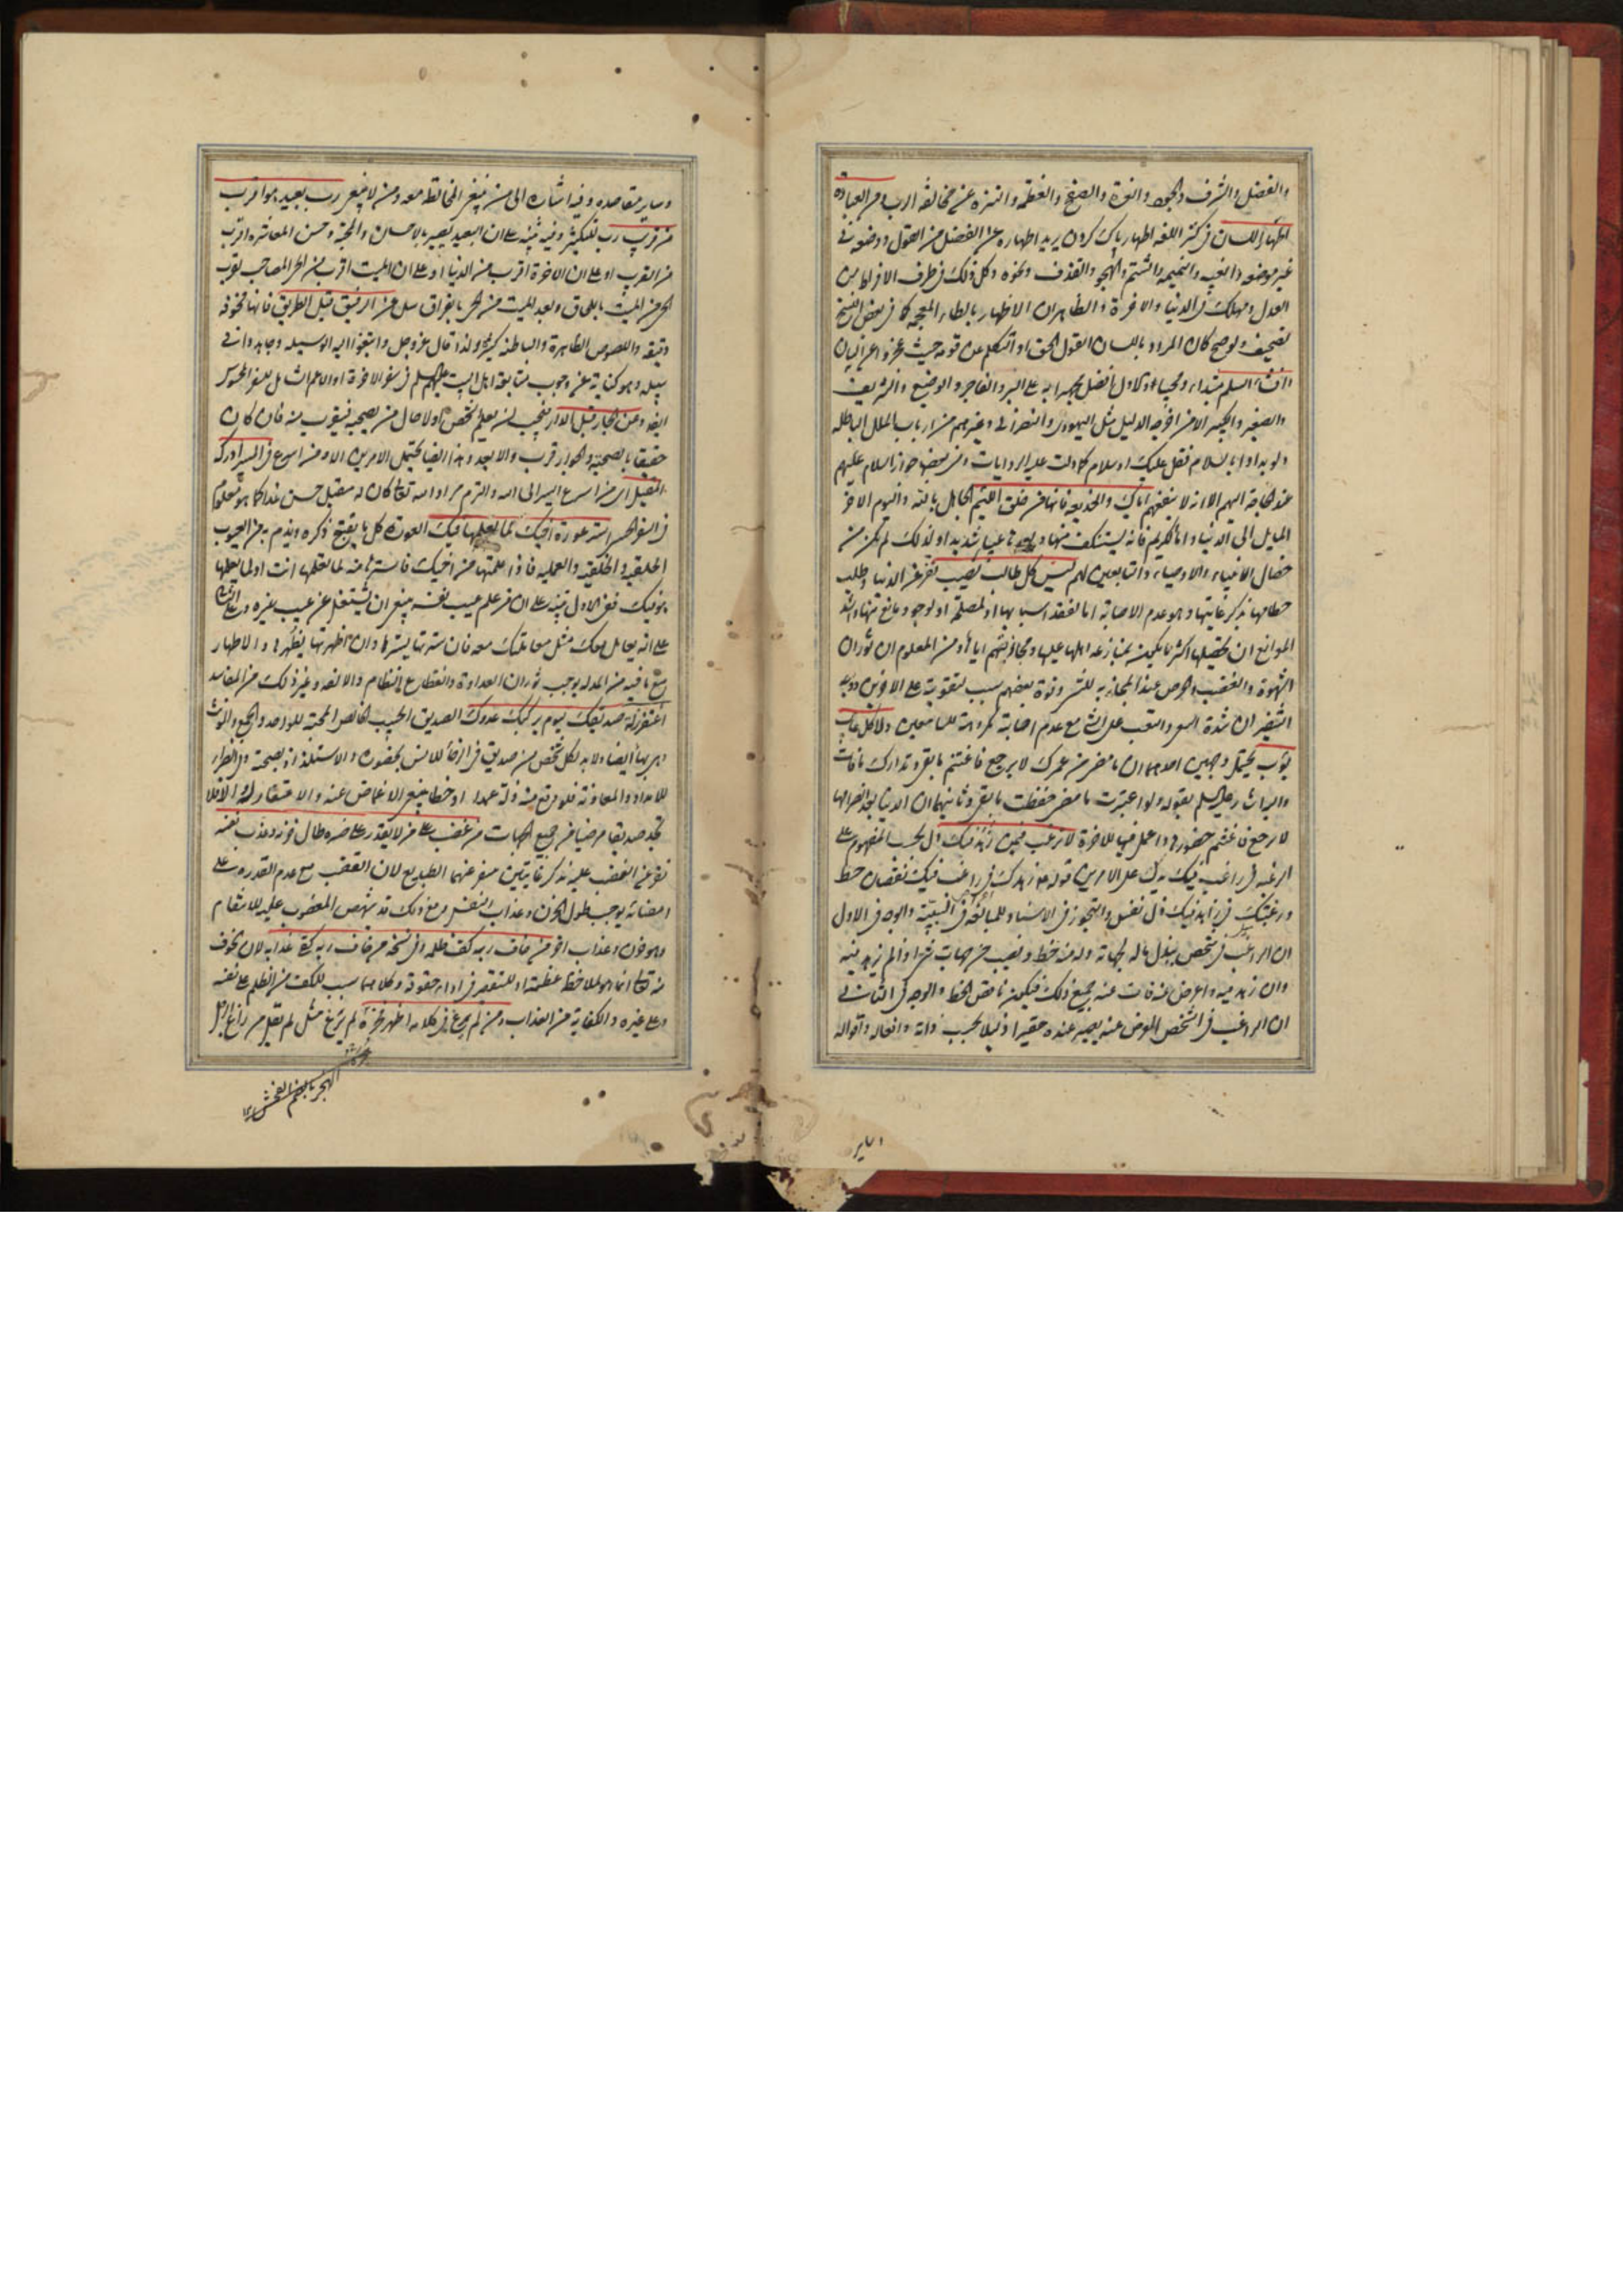 والفضل والشرف والجود والعزة والصفح والعظمة والتنزه عن مخالفة الرب من العبادة
اظهار اللسان في كنز اللغه اظهار پاك كردن يريد اطهاره عن الفضل من القول ووضعه في
غير موضعه والغيبه والنميمه والشتم والهجو والقذف ونحوه وكل ذلك في طرف الافراط من
العدل ومهلك في الدنيا والاخرة والظاهر ان الاظهار بالظاء المعجمه كما في بعض النسخ
تصحيف ولو صح كان المراد باللسان القول الحق او المتكلم عن قومه حيث عجزوا عن البيان
وافشاء السلم مبتداء ومجيبا والاول افضل يجهر به على البر والفاجر والوضيع والشريف
والصغير والكبير الا من اخرجه الدليل مثل اليهودي والنصراني وغيرهم من ارباب الملل الباطله
ولو بداوا بالسلام فقل عليك او سلام كما دلت عليه الروايات وفي بعضها جواز السلام عليهم
عند الحاجة اليهم الا انه لا ينفعهم اياك والخديعه فانها من خلق اللئيم الجاهل بالله واليوم الاخر
المايل الى الدنيا واما الكريم فانه يستنكف منها ويعدها عيبا شديدا ولذلك لم يكن من
خصال الانبياء والاوصياء والتابعين لهم ليس كل طالب نصيب نفر عن الدنيا وطلب
حطامها بذكر غايتها وهو عدم الاصابة اما لفقد اسبابها او لمصلحة او لوجود مانع منها واشد
الموانع ان تحصيلها اكثر ما يكون بمنازعه اهلها عليها ومجاذبتهم اياها ومن المعلوم ان ثوران
الشهوة والغضب والحرص عند المجاذبه للشر وقوة بعضهم سبب لتقويته على الاخرين ووجه
التنفير ان شدة السعي والتعب على الشيء مع عدم اصابته مكروهة للسامعين ولا كل غايب
يؤب يحتمل وجهين احدهما ان ما مضى من عمرك لا يرجع فاغتنم ما بقي وتدارك ما فات
واليه اشار عليه السلم بقوله ولو اعتبرت ما مضى حفظت ما بقي وثانيهما ان الدنيا بعد انصرامها
لا ترجع فاغتنم حضورها واعمل فيها للاخرة لا ترغب فيمن زهد فيك دل بحسب المفهوم على
الرغبة في راغب فيك يدل على الامرين قوله ع زهدك في راغب فيك نقصان حظ
ورغبتك في زاهد فيك ذل نفس والتجوز في الاسناد للمبالغه في السببية والوجه في الاول
ان الراغب في شخص يبذل ماله لجهاته وله منه حظ ونصيب من جهات شتى اذا لم يزهد فيه
وان زهد فيه واعرض عنه فات عنه جميع ذلك فيكون ناقص الحظ والوجه في الثاني
ان الراغب في الشخص المعرض عنه يصير عنده حقيرا ذليلا بحسب ذاته وافعاله واقواله
وساير
وساير مقاصده وفيه اشاره الى من ينبغي المخالطه معه ومن لا ينبغي رب بعيد هو اقرب
من قريب رب للتكثير وفيه تنبيه على ان البعيد يصير بالاحسان والمحبة وحسن المعاشرة اقرب
من القريب او على ان الاخرة اقرب من الدنيا او على ان الميت اقرب من الحي المصاحب لقرب
الحي من الميت باللحاق وبعد الميت من الحي بالفراق سل عن الرفيق قبل الطريق فانها مخوفه
وتيقه واللصوص الظاهرة والباطنه كثيرة ولذا قال عز وجل وابتغوا اليه الوسيله وجاهدوا في
سبيله وهو كناية عن وجوب متابعة اهل البيت عليهم السلم في سفر الاخرة او الاعم الشامل للسفر المحسوس
ايضا وعن الجار قبل الدار يجب ان يعلم شخص اولا حال من يصحبه فيقرب منه فان كان
حقيقا بالصحبة والجوار قرب والا بعد وهذا ايضا يحتمل الامرين الا ومن اسرع في السير ادركه
المقيل اي من اسرع السير الى الله والتزم مراد الله تعالى كان له مقيل حسن غدا كما هو معلوم
في السفر الحسي استر عورة اخيك لما تعلمها فيك العورة كل ما يقبح ذكره ويذم به من العيوب
الخلقيه والخلقيه والعمليه فاذا علمتها من اخيك فاسترها منه لما تعلمها انت او لما يعلمها
هو فيك فعلى الاول تنبيه على ان من علم عيب نفسه ينبغي ان يشتغل عن عيب غيره وعلى الثاني
على انه يعامل معك مثل معاملتك معه فان سترتها يسترها وان اظهرتها يظهرها والاظهار
مع ما فيه من المذله يوجب ثوران العداوة وانقطاع النظام والالفه وغير ذلك من المفاسد
اغتفر زلة صديقك ليوم يركبك عدوك الصديق الحبيب الخالص المحبة للواحد والجمع والمونث
وهي بهاء ايضا ولا بد لكل شخص من صديق في الرخاء للانس بحضوره والاستلذاذ بصحبته وفي الضراء
للامداد والمعاونة فلو وقع منه زلة عمدا او خطا ينبغي الاغماض عنه والاغتفار له والا فلا
تجد صديقا مرضيا من جميع الجهات من غضب على من لا يقدر على ضره طال حزنه وعذب نفسه
نفر عن الغضب عليه بذكر غايتين منفر عنهما الطبايع لان الغضب مع عدم القدره على
امضائه يوجب طول الحزن وعذاب النفس ومع ذلك قد ينتهض المغضوب عليه للانتقام
وهو حزن وعذاب اخر من خاف ربه كف ظلمه وفي نسخة من خاف ربه كفى عذابه لان الخوف
منه تعالى انما هو لملاحظة عظمته او للتقصير في اداء حقوقه وكلاهما سبب للكف من الظلم على نفسه
وعلى غيره والكفاية من العذاب ومن لم يرغ في كلامه اظهر فخره لم يرغ مثل لم يقل من راغ الرجل